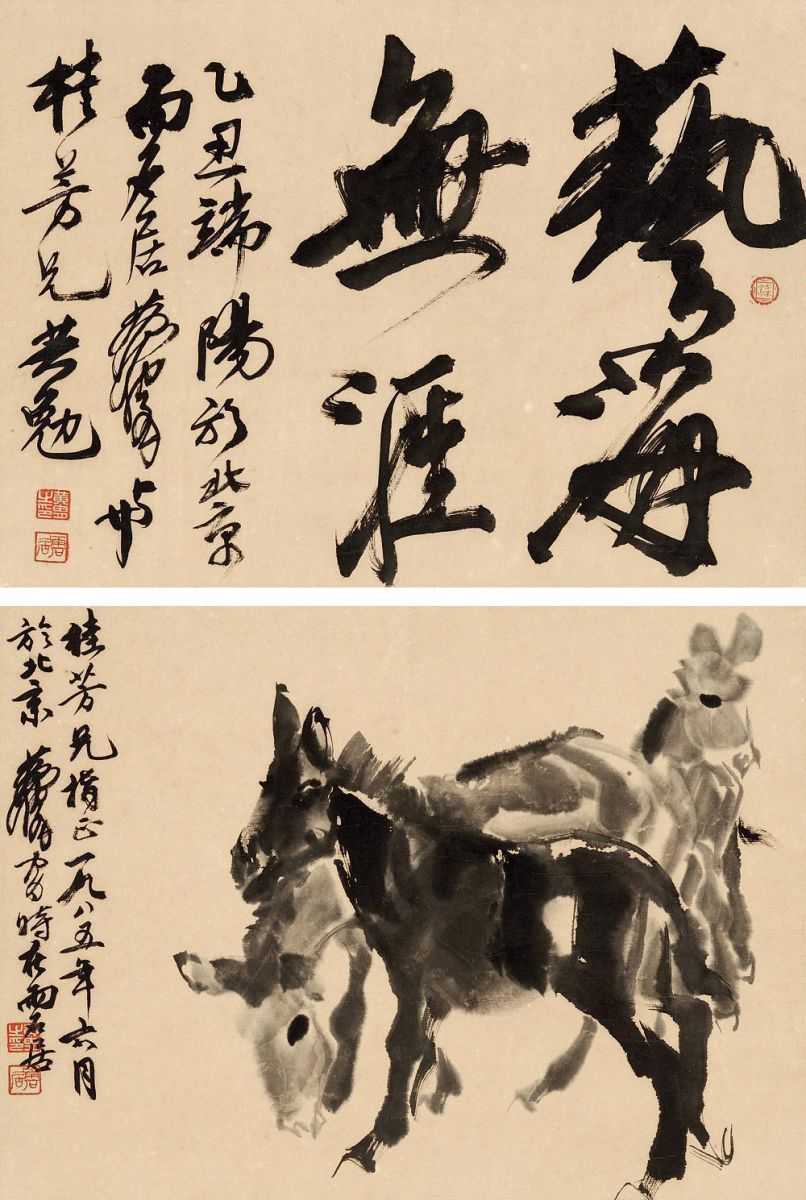 藝海
無涯
乙丑端陽於北京
雨石居黃冑与
桂芳兄共勉
桂芳兄指正一九八五年六月
於北京黃冑寫時在雨石居